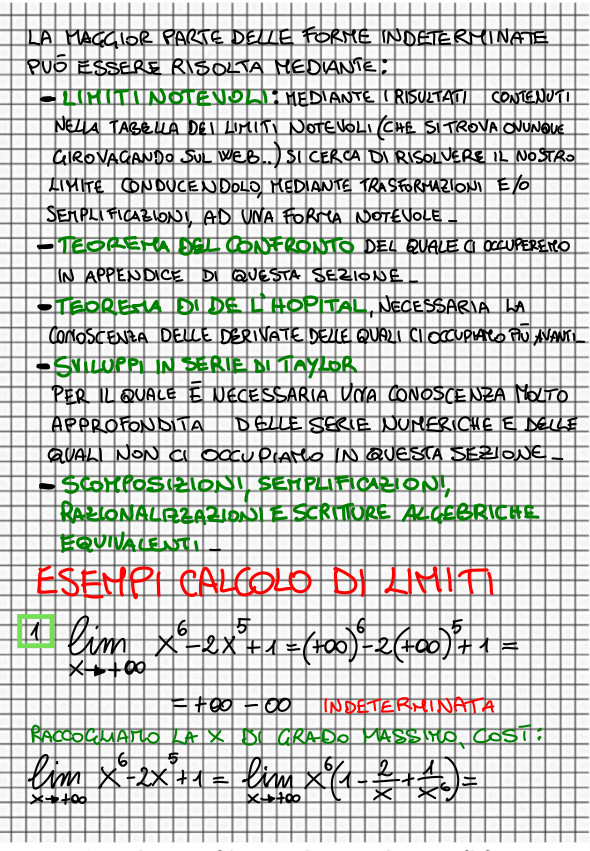 LA MAGGIOR PARTE DELLE FORME INDETERMINATE
PUÒ ESSERE RISOLTA MEDIANTE:
- LIMITI NOTEVOLI: MEDIANTE I RISULTATI CONTENUTI
NELLA TABELLA DEI LIMITI NOTEVOLI (CHE SI TROVA OVUNQUE
GIROVAGANDO SUL WEB..) SI CERCA DI RISOLVERE IL NOSTRO
LIMITE CONDUCENDOLO, MEDIANTE TRASFORMAZIONI E/O
SEMPLIFICAZIONI, AD UNA FORMA NOTEVOLE_
- TEOREMA DEL CONFRONTO DEL QUALE CI OCCUPEREMO
IN APPENDICE DI QUESTA SEZIONE_
- TEOREMA DI DE L'HOPITAL, NECESSARIA LA
CONOSCENZA DELLE DERIVATE DELLE QUALI CI OCCUPIAMO PIÙ AVANTI_
- SVILUPPI IN SERIE DI TAYLOR
PER IL QUALE È NECESSARIA UNA CONOSCENZA MOLTO
APPROFONDITA DELLE SERIE NUMERICHE E DELLE
QUALI NON CI OCCUPIAMO IN QUESTA SEZIONE_
- SCOMPOSIZIONI, SEMPLIFICAZIONI,
RAZIONALIZZAZIONI E SCRITTURE ALGEBRICHE
EQUIVALENTI_
ESEMPI CALCOLO DI LIMITI
1 lim x→+∞ x⁶-2x⁵+1 = (+∞)⁶-2(+∞)⁵+1 =
= +∞ -∞ INDETERMINATA
RACCOGLIAMO LA X DI GRADO MASSIMO, COSÌ:
lim x→+∞ x⁶-2x⁵+1 = lim x→+∞ x⁶(1-2/x+1/x⁶)=